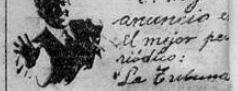 anuncio e
el mejor pe
riódico:
"La Tribuna